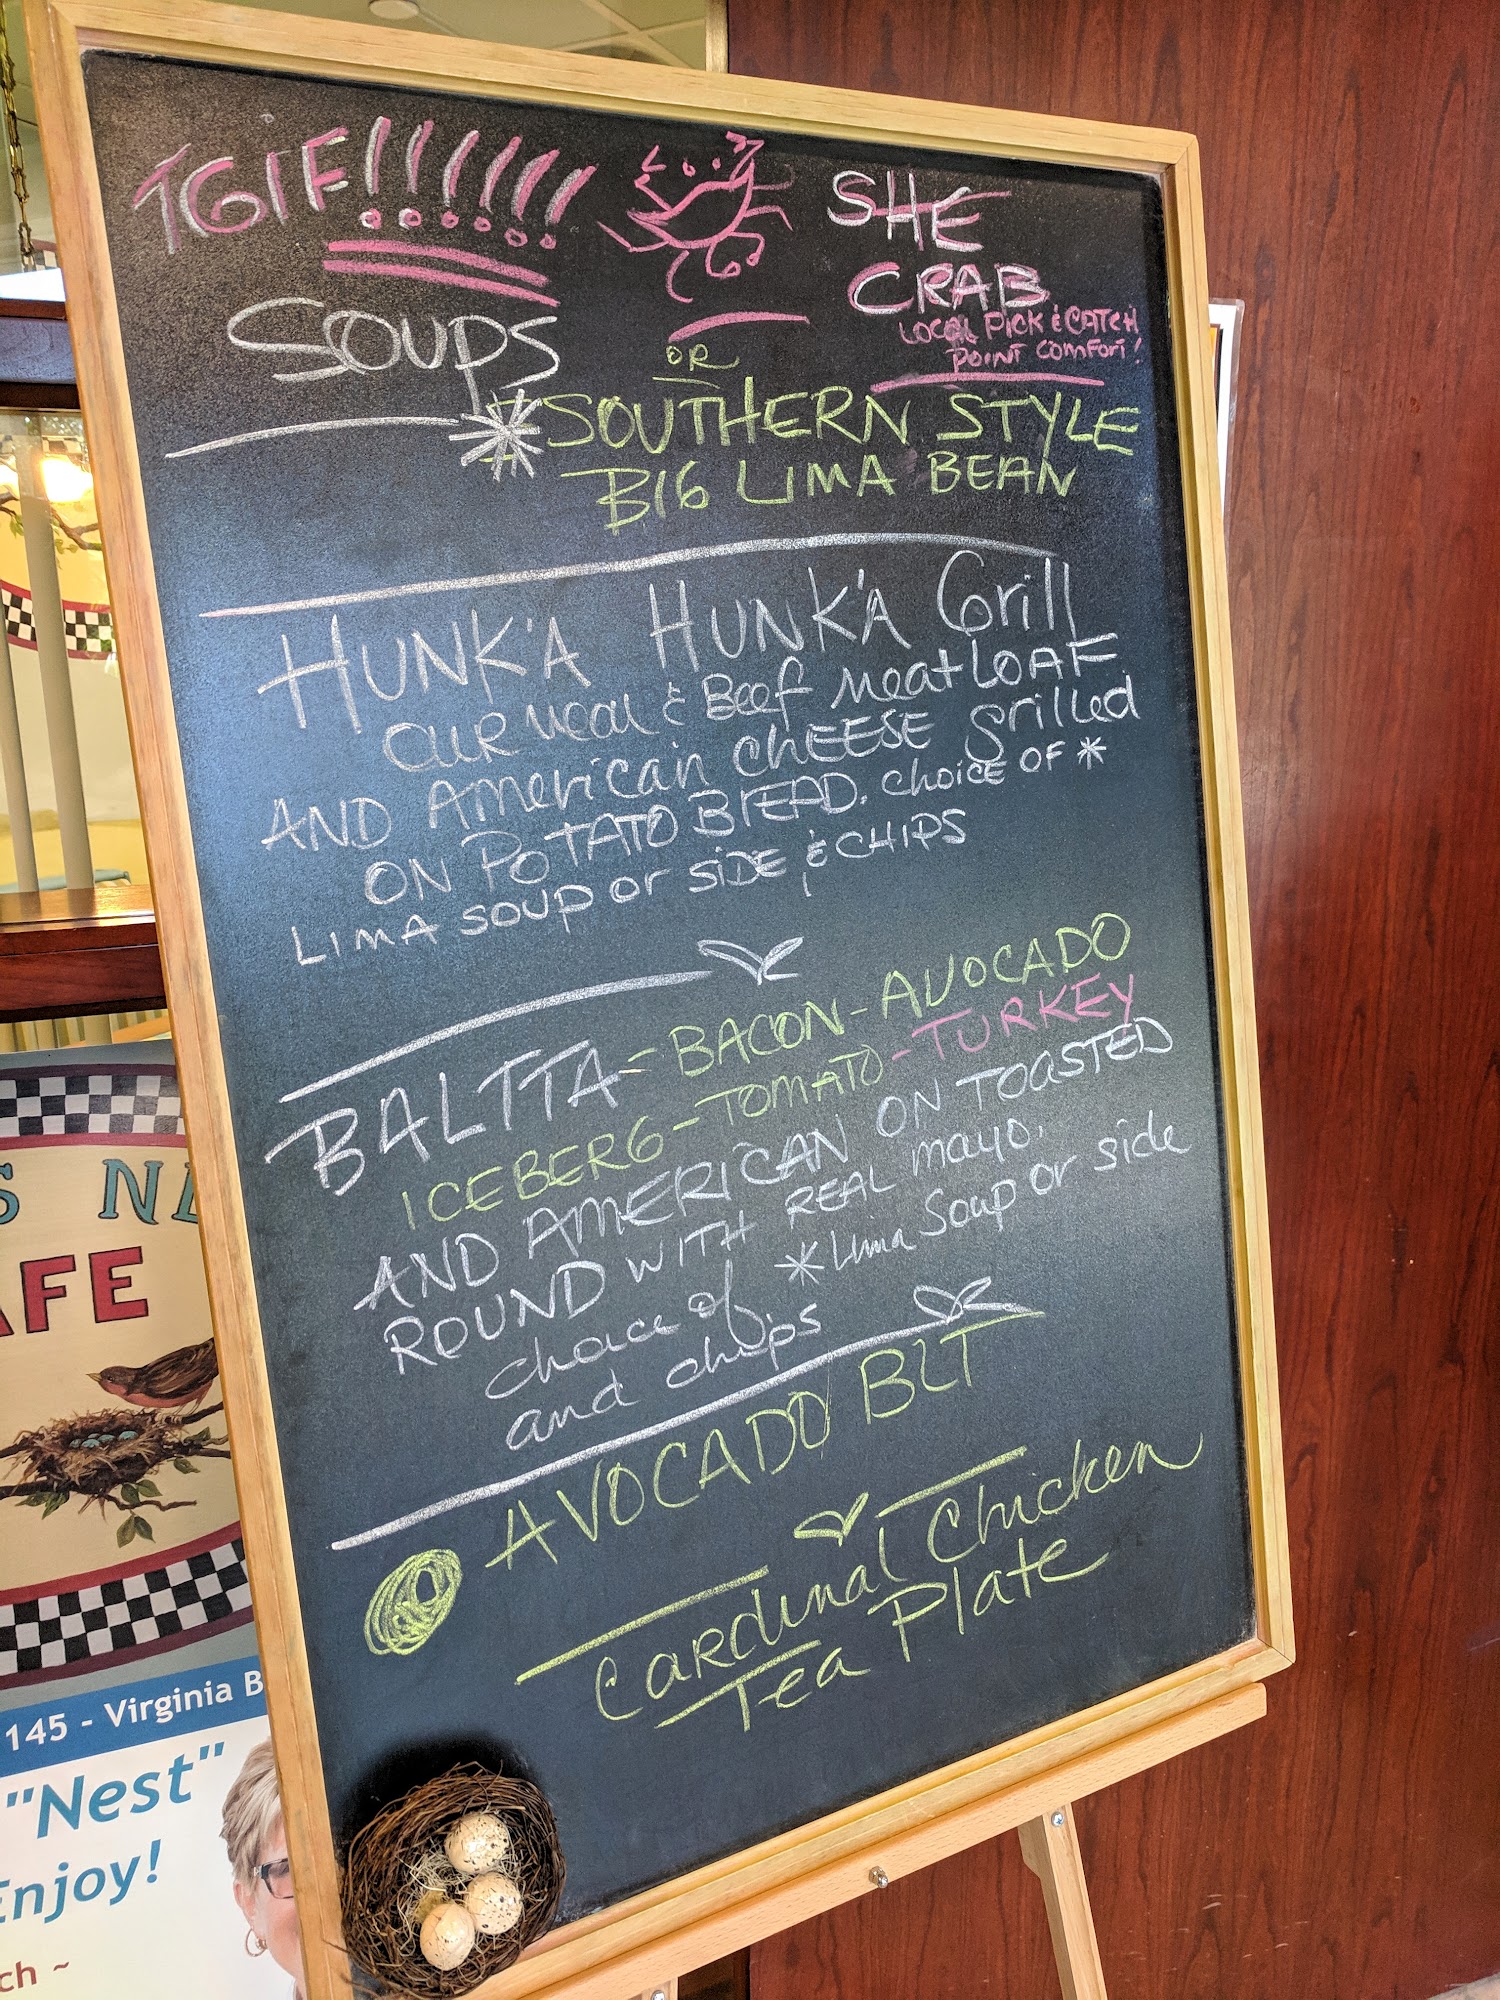 TGIF!!!!!!
SHE
CRAB
LOCAL PICK & CATCH
POINT COMFORT!
SOUPS
OR
*SOUTHERN STYLE
BIG LIMA BEAN
HUNK'A HUNK'A Grill
OUR Veal & Beef Meat LOAF
AND American CHEESE Grilled
ON POTATO BREAD. choice OF *
LIMA SOUP or SIDE & CHIPS
BALTTA - BACON - AVOCADO
ICEBERG - TOMATO - TURKEY
AND AMERICAN ON TOASTED
ROUND WITH REAL mayo.
choice of *Lima Soup or side
and chips
AVOCADO BLT
Cardinal Chicken
Tea Plate
S NE
AFE
145 - Virginia B
"Nest"
Enjoy!
ch ~